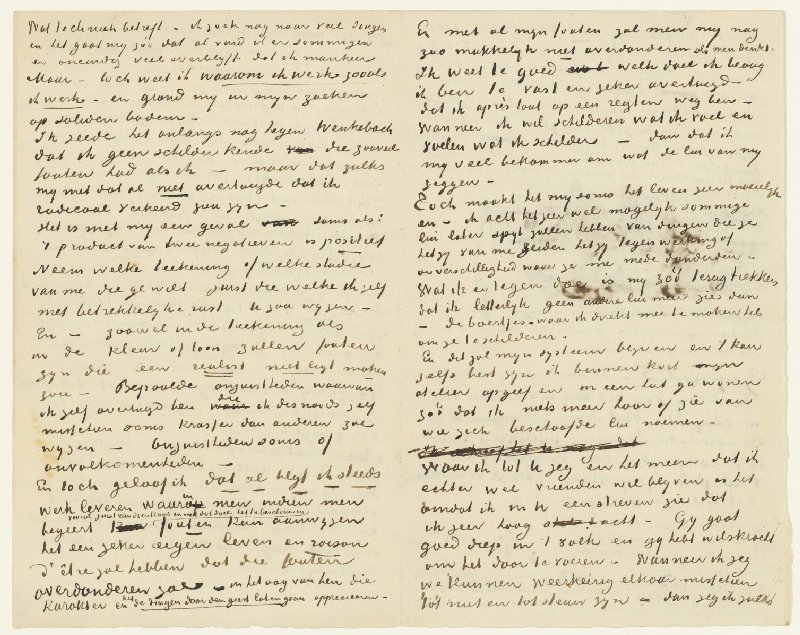 Wat techniek betreft – ik zoek nog naar veel dingen
en het gaat mij zóó dat al vond ik er sommigen
er oneindig veel overblijft dat ik mankeer
Maar – toch weet ik waarom ik werk zooals
ik werk – en grond mij in mijn zoeken
op solieden bodem. –
Ik zeede het onlangs nog tegen Wenkebach
dat ik geen schilder kende die zooveel
fouten had als ik – maar dat zulks
mij met dat al niet overtuigde dat ik
radicaal verkeerd zou zijn –
Het is met mij een geval soms als:
't product van twee negatieven is positief
Neem welke teekening of welke studie
van mij die ge wilt juist die welke ik zelf
met betrekkelijke rust U zou wijzen –
En – zoowel in de teekening als
in de kleur of toon zullen fouten
zijn die een realist niet ligt maken
zou – Bepaalde onjuistheden waarvan
ik zelf overtuigd ben die ik desnoods zelf
misschien soms krasser dan anderen zou
wijzen – Onjuistheden soms of
onvolkomenheden –
En toch geloof ik dat al blijf ik steeds
werk leveren waarin men indien men
vooral juist van den kant en met dat doel het te beschouwen
begeert fouten kan aanwijzen
het een zeker eigen leven en raison
d'être zal hebben dat die fouten
overdonderen zal – in het oog van hen die
karakter en het de dingen door den geest laten gaan apprecieeren –
En met al mijn fouten zal men mij nog
zoo makkelijk niet overdonderen als men denkt.
Ik weet te goed welk doel ik beoog
ik ben te vast en zeker overtuigd
dat ik après tout op een regten weg ben –
Wanneer ik wil schilderen wat ik voel en
voelen wat ik schilder – dan dat ik
mij veel bekommer om wat de lui van mij
zeggen –
Toch maakt het mij soms het leven zeer moeielijk
en – ik acht het zeer wel mogelijk sommige
lui later spijt zullen hebben van dingen die ze
hetzij van me zeiden hetzij tegenwerking of
onverschilligheid waar ze me mede donderden –
Wat ik er tegen doe is mij zóó terug trekken
dat ik letterlijk geen andere lui meer zie dan
– de boertjes – waar ik direkt mee te maken heb
om ze te schilderen.
En dit zal mijn systeem blijven en 't kan
zelfs best zijn ik binnen kort mijn
atelier opgeef en in een hut ga wonen
zóó dat ik niets meer hoor of zie van
wie zich beschaafde lui noemen –
Waar ik tot U zeg en het meen dat ik
echter wel vrienden wil blijven is het
omdat ik in U een streven zie dat
ik zeer hoog acht – Gij gaat
goed diep in 't volk en gij hebt wilskracht
om het door te voeren – Wanneer ik zeg
we kunnen weerkeerig elkaar misschien
tot nut en tot steun zijn – dan zeg ik zulks